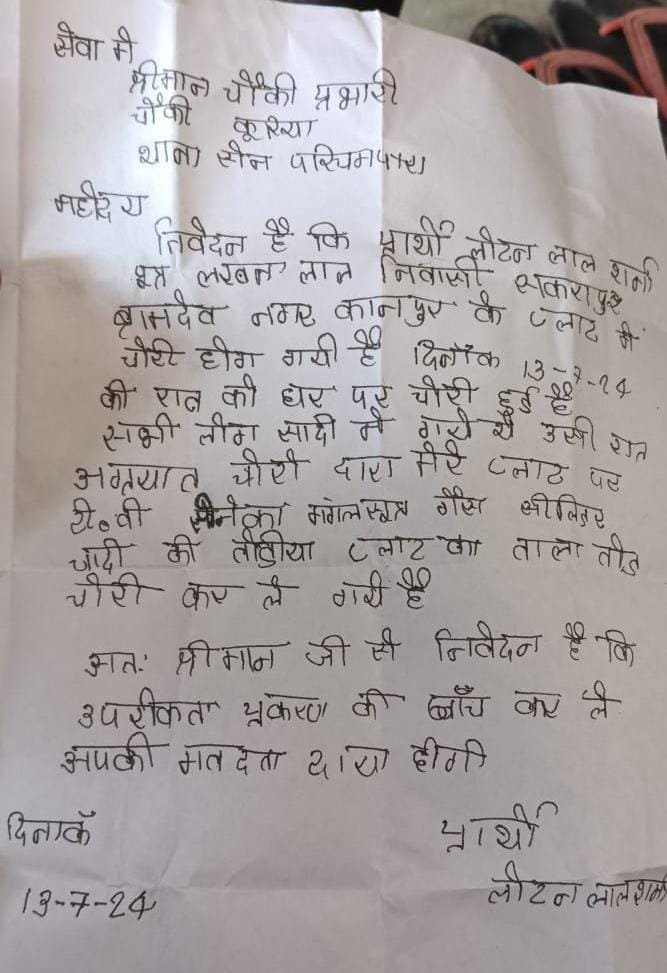 सेवा मे
श्रीमान चौकी प्रभारी
चौकी कूरिया
थाना सेन पश्चिमपारा
महोदय
निवेदन है कि प्रार्थी लौटन लाल शर्मा
पुत्र लखन लाल निवासी सकरापुर
बामदेव नगर कानपुर के प्लाट मे
चोरी होग गयी है दिनाँक 13-7-24
की रात को घर पर चोरी हुई है
सभी लोग सादी मे गये थे उसी रात
अग्नयात चोरो दारा मेरे प्लाट पर
टी०वी सोनेका मंगलसूत्र गैस सीलिंडर
चादी की तोडीया प्लाट का ताला तोड
चोरी कर ले गये है
अतः श्रीमान जी से निवेदन है कि
उपरोकता प्रकरण की जाँच कर ले
आपकी मतदता दाया होगी
दिनाकँ
13-7-24
प्रार्थी
लौटन लाल शर्मा